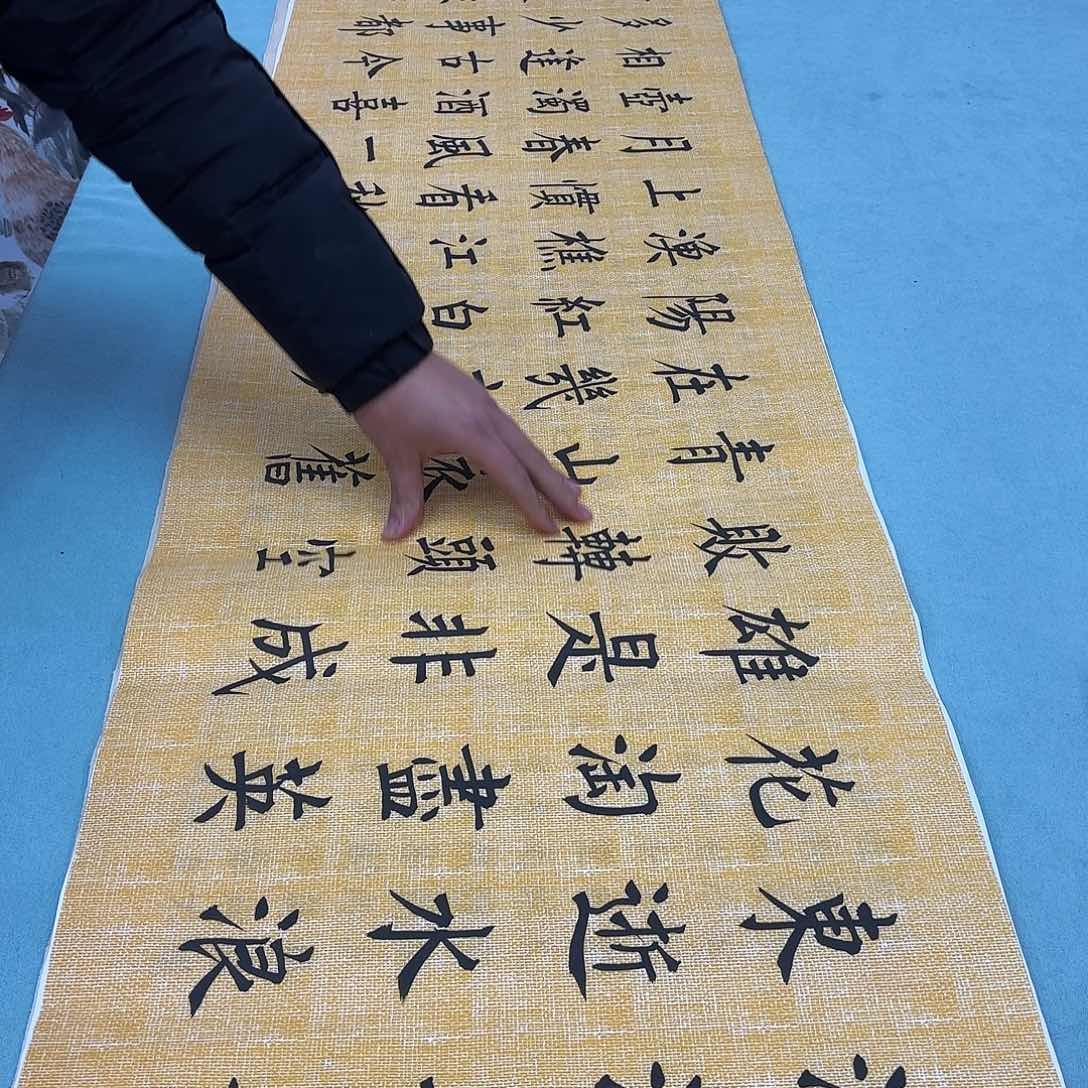 東逝水浪
花淘盡英
雄是非成
敗轉頭空
青山依舊
在幾
陽紅白
漁樵江
上慣看秋
月春風一
壺濁酒喜
相逢古今
多少事都